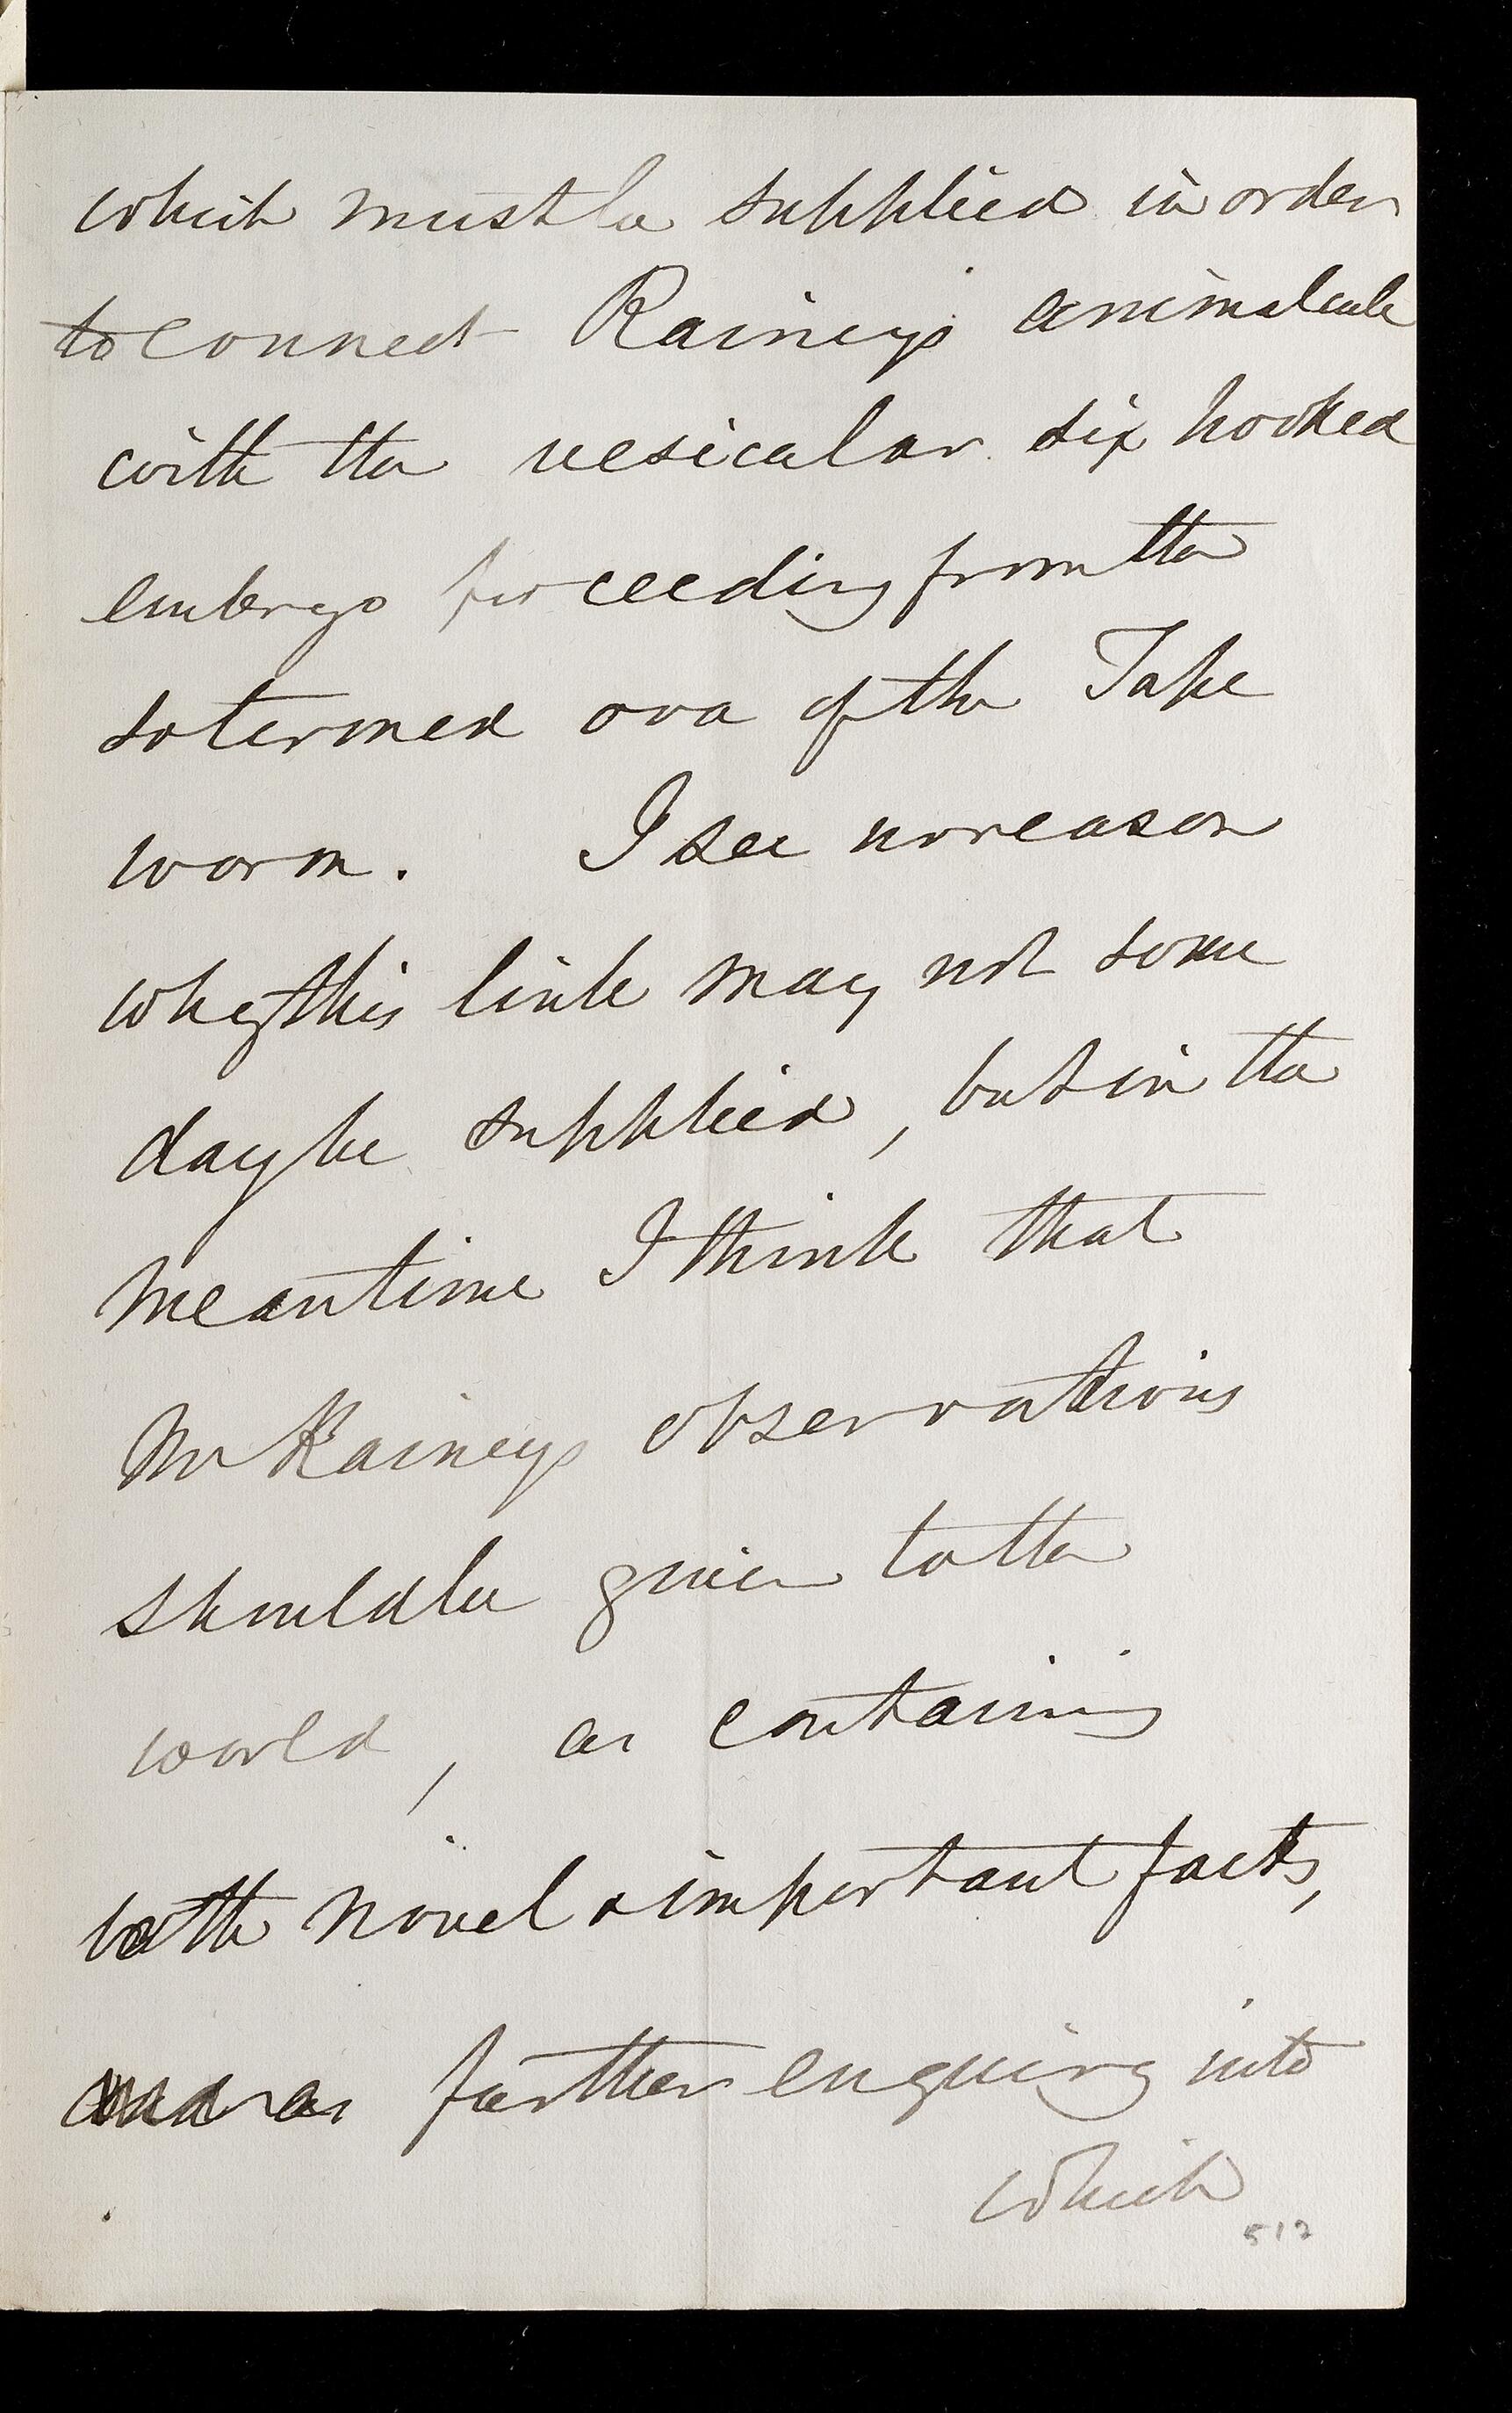 which must be supplied in order
to connect Rainey's animalcule
with the vesicular six hooked
embryo proceeding from the
so termed ova of the Tape
worm. I see no reason
why this link may not some
day be supplied, but in the
meantime I think that
Mr Rainey's observations
should be given to the
world, as containing
both novel & important facts,
and as further enquiry into
which
517